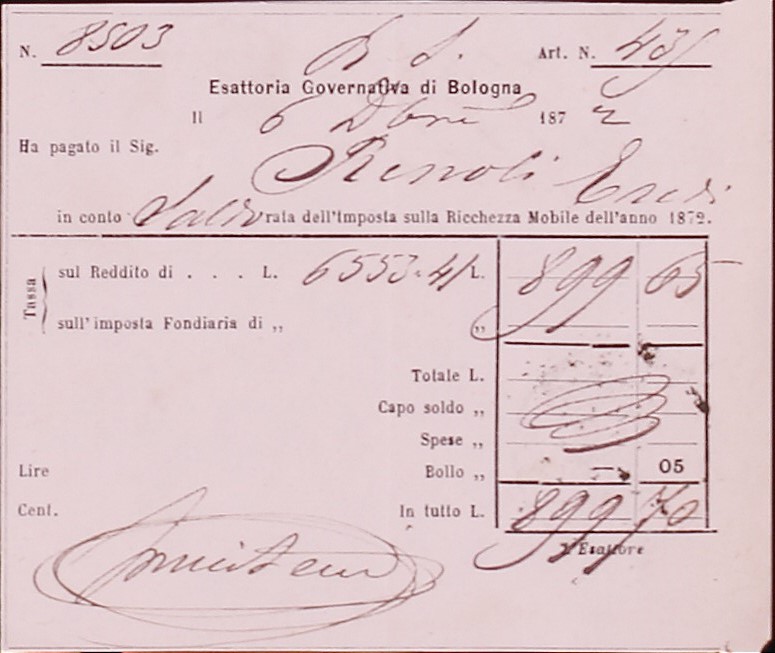 N. 8503 Art. N. 435
Esattoria Governativa di Bologna
Il 6 Dbre 1872
Ha pagato il Sig. Eredi
in conto Saldo rata dell'imposta sulla Ricchezza Mobile dell'anno 1872.
Tassa
sul Reddito di . . . L. 6553.41 L. 899 65
sull'imposta Fondiaria di „ „
Totale L.
Capo soldo „
Spese „
Lire Bollo „ 05
Cent. In tutto L. 899 70
L'Esattore